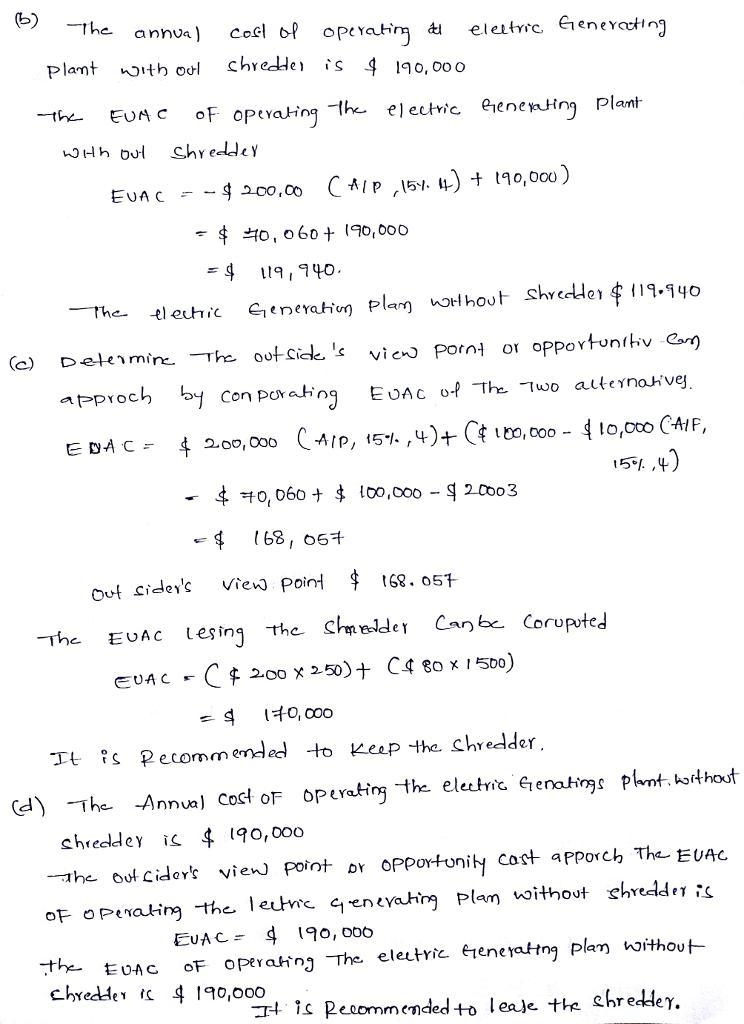 (b) The annual cost of operating el electric Generating
Plant with out shredder is $ 190,000
The EUAC OF operating the electric Generating Plant
With out Shredder
EUAC = -$ 200,00 (A/P, 15%. 4) + 190,000)
= $ 70,060 + 190,000
= $ 119,940.
The electric Generation plan without shredder $ 119.940
(c) Determine The out side's view point or opportunitiv can
approch by conporating EUAC of The Two alternatives.
EUAC = $ 200,000 (A/P, 15%, 4) + ($ 100,000 - $ 10,000 (A/F,
15%, 4)
= $ 70,060 + $ 100,000 - $ 20003
= $ 168,057
Out sider's view point $ 168.057
The EUAC lesing the Shredder Can be Coruputed
EUAC = ($ 200 x 250) + ($ 80 x 1500)
= $ 170,000
It is Recommended to Keep the shredder.
(d) The Annual cost OF Operating the electric Genatings plant. without
shredder is $ 190,000
The outsider's view point or opportunity cast apporch The EUAC
OF operating the lectric generating plan without shredder is
EUAC = $ 190,000
The EUAC OF operating The electric Generating plan without
Shredder is $ 190,000
It is Recommended to lease the shredder.